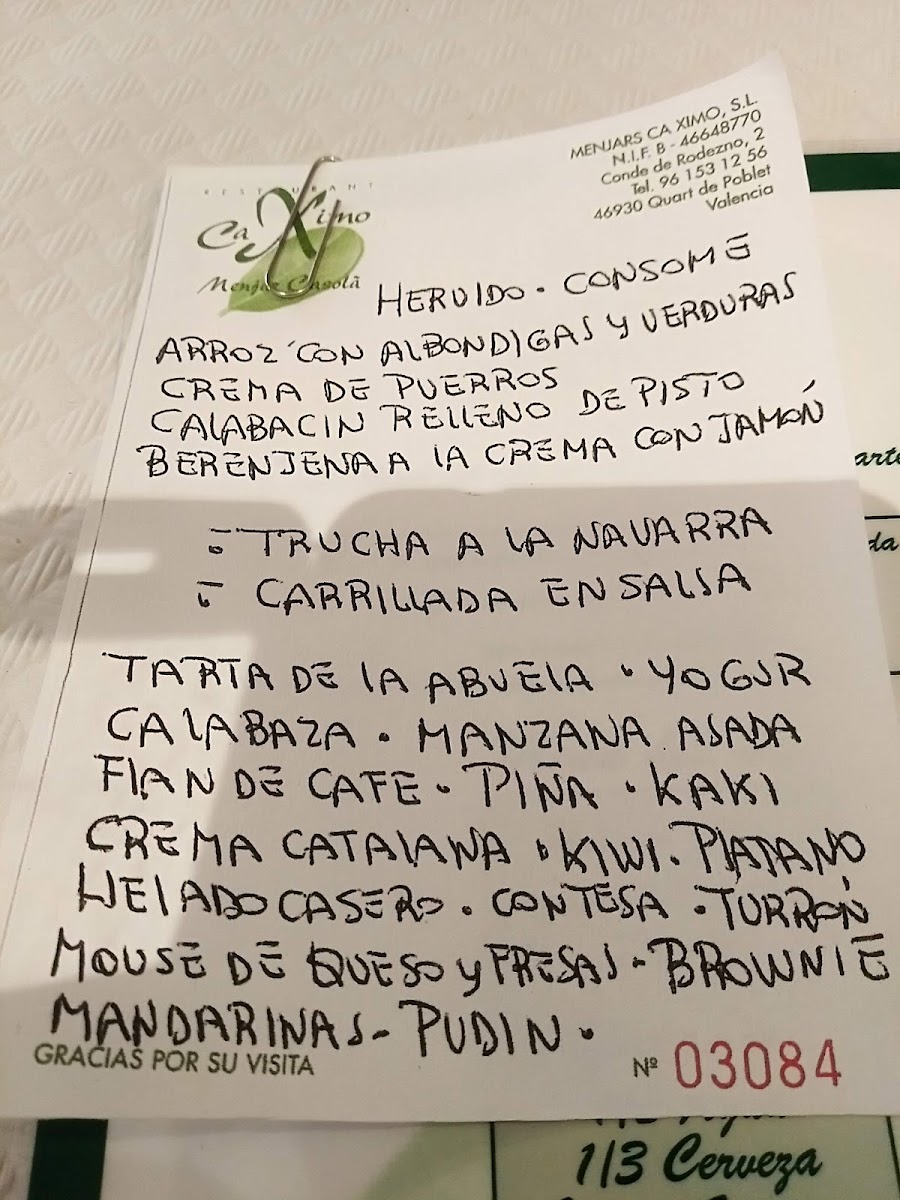 RESTAURANT
Ca Ximo
Menjar Casolà
MENJARS CA XIMO, S.L.
N.I.F. B - 46648770
Conde de Rodezno, 2
Tel. 96 153 12 56
46930 Quart de Poblet
Valencia
HERVIDO · CONSOME
ARROZ CON ALBONDIGAS Y VERDURAS
CREMA DE PUERROS
CALABACIN RELLENO DE PISTO
BERENJENA A LA CREMA CON JAMÓN
- TRUCHA A LA NAVARRA
- CARRILLADA EN SALSA
TARTA DE LA ABUELA · YOGUR
CALABAZA · MANZANA ASADA
FLAN DE CAFE · PIÑA · KAKI
CREMA CATALANA · KIWI · PLATANO
HELADO CASERO · CONTESA · TURRÓN
MOUSE DE QUESO Y FRESAS · BROWNIE
MANDARINAS - PUDIN ·
GRACIAS POR SU VISITA
Nº 03084
1/3 Cerveza